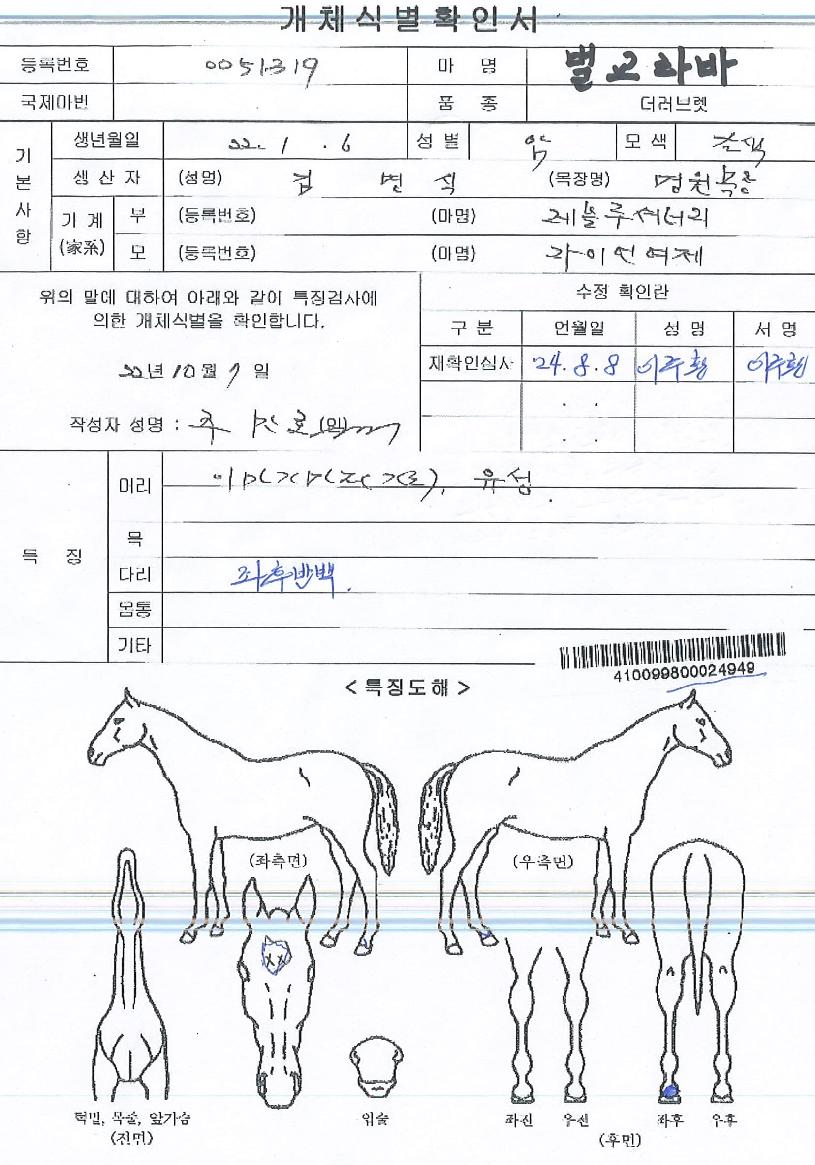 개체식별확인서
등록번호 0051319 마 명 벌교하바
국제마번 품 종 더러브렛
기본사항 생년월일 22. 1 . 6 성별 암 모색
생산자 (성명) 김 면 식 (목장명) 명원목장
기계(家系) 부 (등록번호) (마명)
모 (등록번호) (마명) 라이언여제
위의 말에 대하여 아래와 같이 특징검사에
의한 개체식별을 확인합니다.
22년 10월 7일
작성자 성명 : (인)
수정 확인란
구분 연월일 성명 서명
재확인심사 '24. 8. 8 이주환 이주환
. .
. .
특징
머리 유성.
목
다리 좌후반백.
몸통
기타
410099800024949
<특징도해>
(좌측면) (우측면)
턱밑, 목줄, 앞가슴
(전면)
위술
좌전 우전 좌후 우후
(후면)